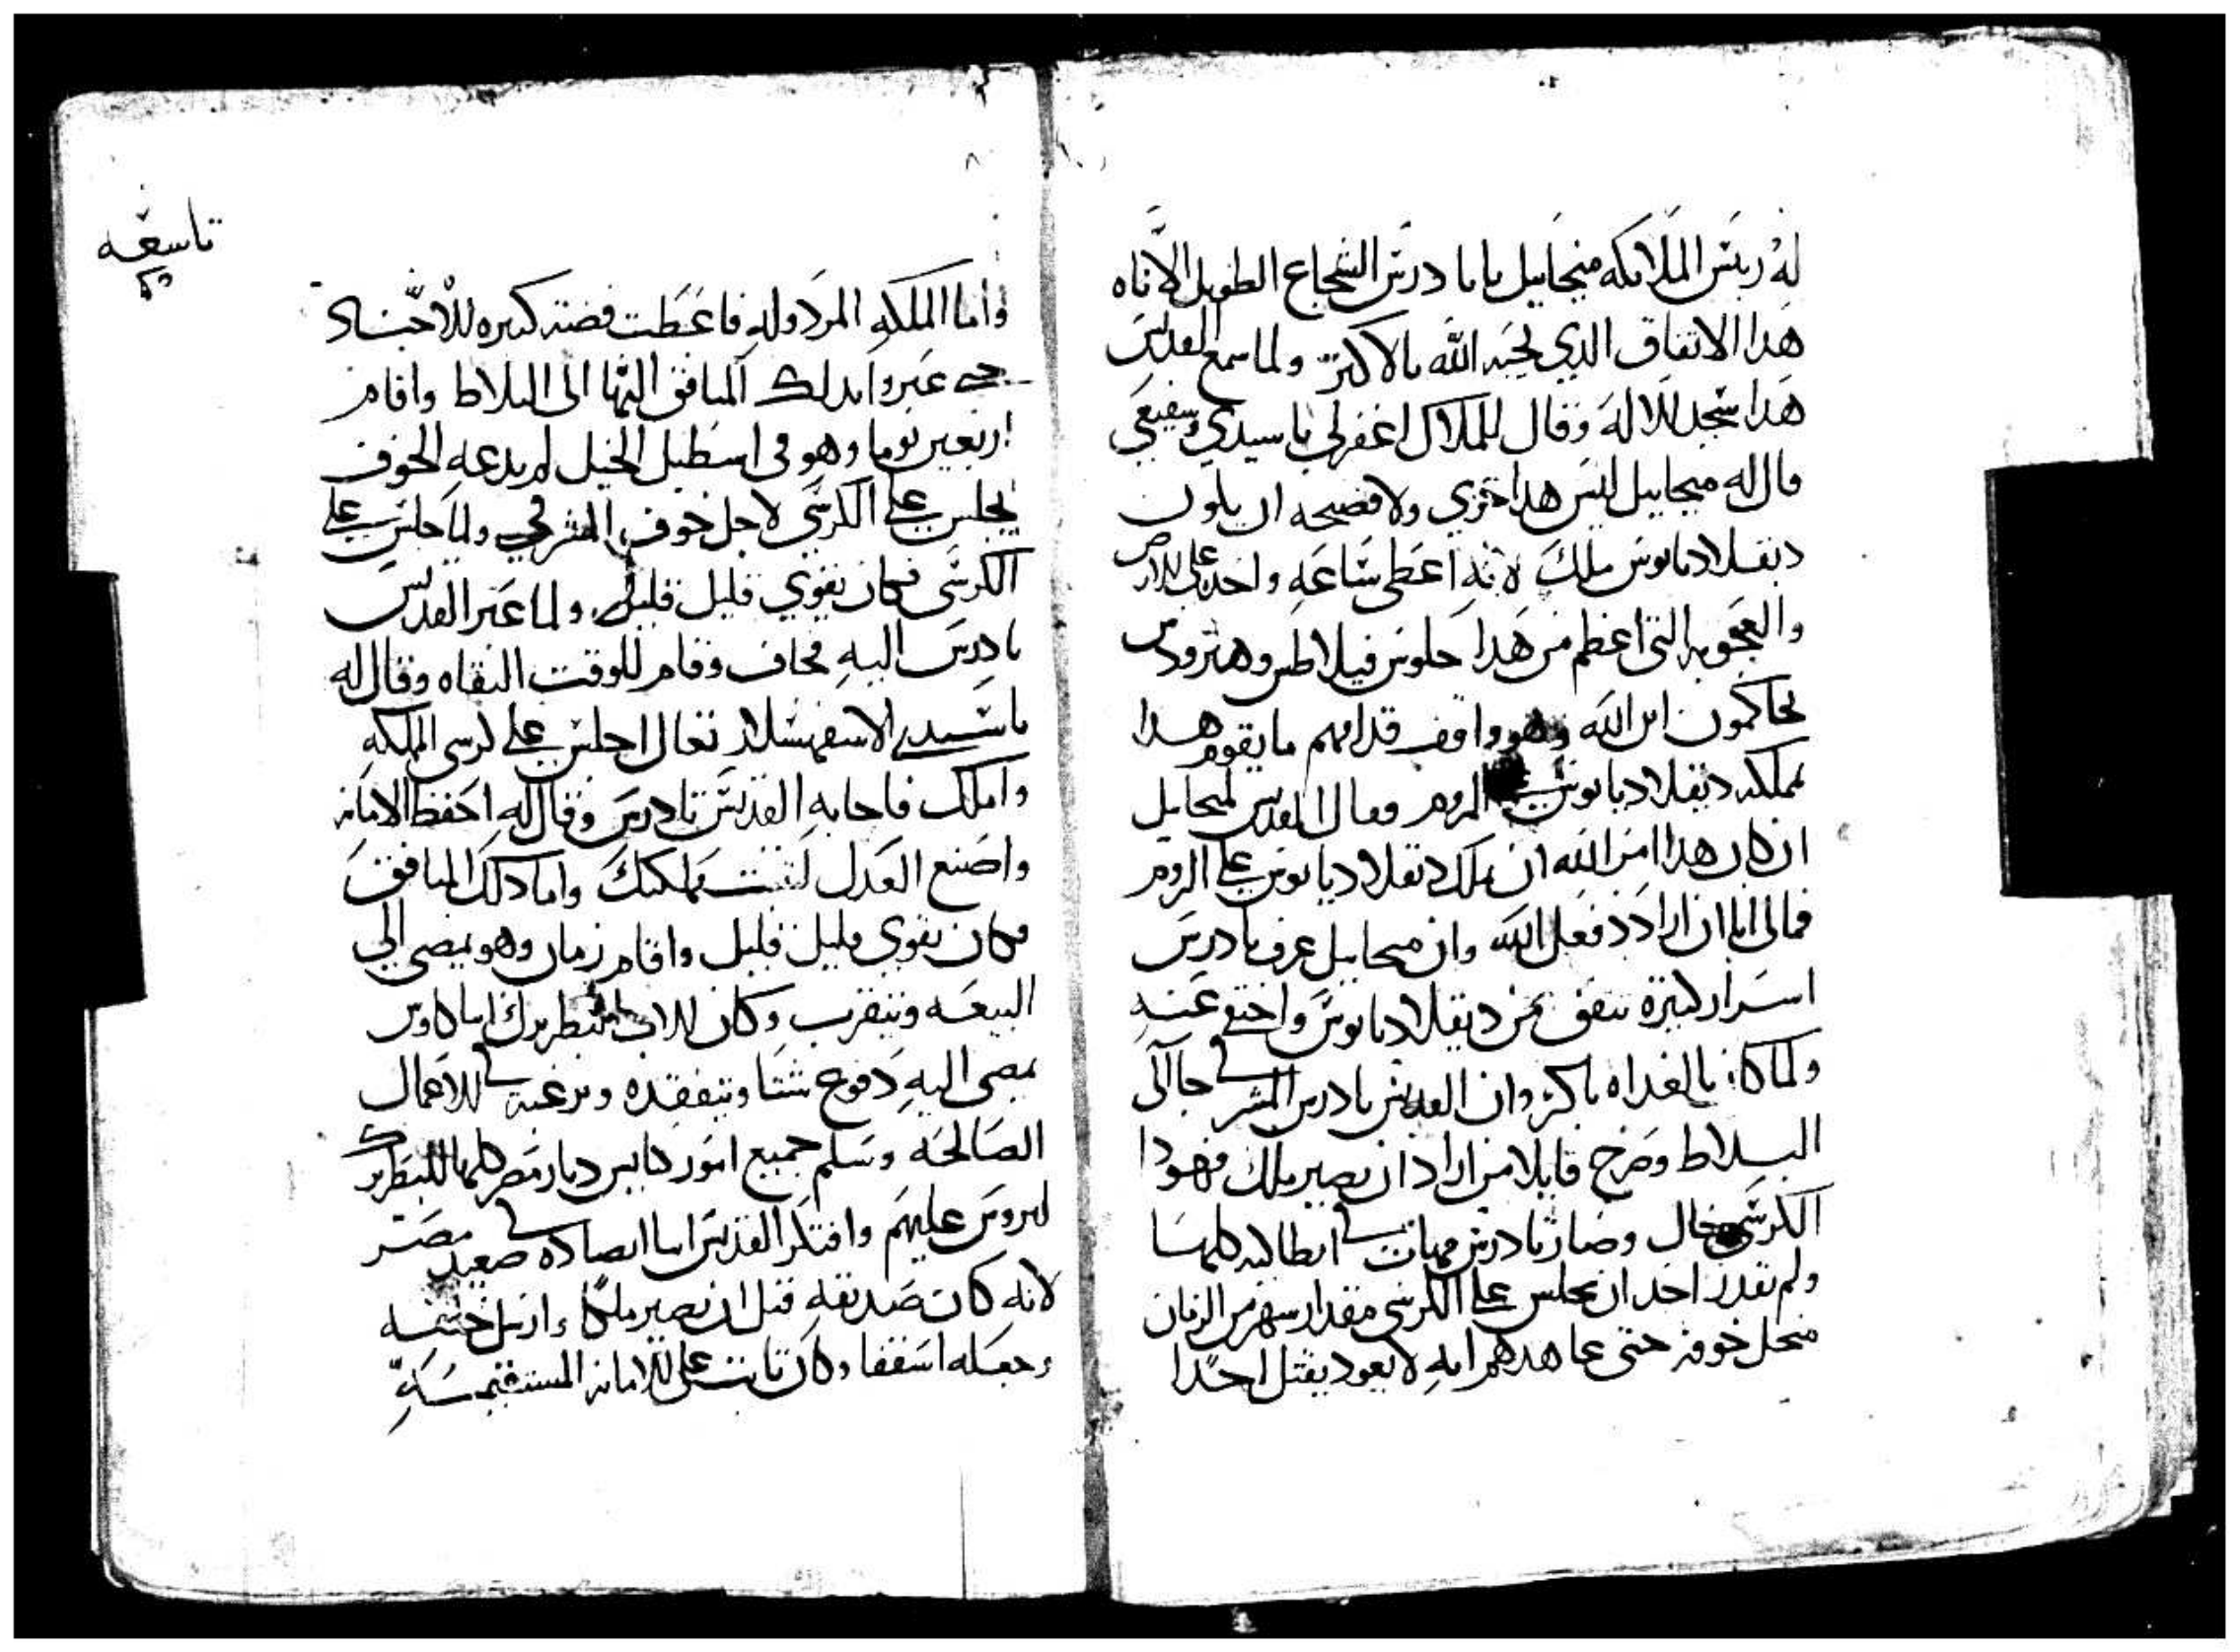 له ريس الملايكه ميخاييل يا تادرس الشجاع الطويل الاناه
هدا الاتفاق الدي يحبه الله بالاكتر ولما سمع القديس
هدا سجد للاله وقال للملاك اغفر لي يا سيدي وشفيعي
قال له ميخاييل ليس هدا خزي ولا فضيحه ان يكون
ديقلاديانوس ملك لانه اعطي ساعه واحده علي الارض
والعجوبه التي اعظم من هدا جلوس فيلاطس وهيرودس
يحاكمون ابن الله وهو واقف قدامهم ما يقوم هدا
مملكة ديقلاديانوس علي الروم وقال القديس لميخاييل
ان كان هدا امر الله ان يملك ديقلاديانوس علي الروم
فمالي انا ان ارادد فعل الله وان ميخاييل عرف تادرس
اسرار كتيرة تتفق من ديقلاديانوس واختفي عنه
ولما كان بالغداه باكر وان القديس تادرس المشرقي جا الي
البلاط وصرخ قايلا من اراد ان يصير ملك فهودا
الكرسي خال وصار تادرس مهاب في انطاكيه كلها
ولم يقدر احد ان يجلس علي الكرسي مقدار شهر من الزمان
منجل خوفه حتي عاهدهم انه لا يعود يقتل احدا
تاسعه
واما الملكه المردوله فاعطت فضه كتيره للاجناد
حتي عبروا بدلك المنافق اليها الي البلاط واقام
اربعين يوما وهو في اسطبل الخيل لم يدعه الخوف
يجلس علي الكرسي لاجل خوف المشرقي ولما جلس علي
الكرسي فكان يقوي قليل قليل ولما عبر القديس
تادرس اليه فخاف وقام للوقت التقاه وقال له
يا سيدي الاسفهسلار تعال اجلس علي كرسي المملكه
واملك فاجابه القديس تادرس وقال له احفظ الامانه
واصنع العدل لتتبت مملكتك واما دلك المنافق
فكان يقوي قليل قليل واقام زمان وهو يمضي الي
البيعه ويتقرب وكان الاب البطريرك انبا كاوس
يمضي اليه دفوع شتا ويتفقده ويرغبه في الاعمال
الصالحه وسلم جميع امور كنايس ديار مصر كلها للبطريرك
ليروس عليهم وافتكر القديس انبا ابصاده في صعيد مصر
لانه كان صديقه قبل ان يصير ملكا وارسل خلفه
وجعله اسقفا وكان تابت علي الامانه المستقيمه سنه